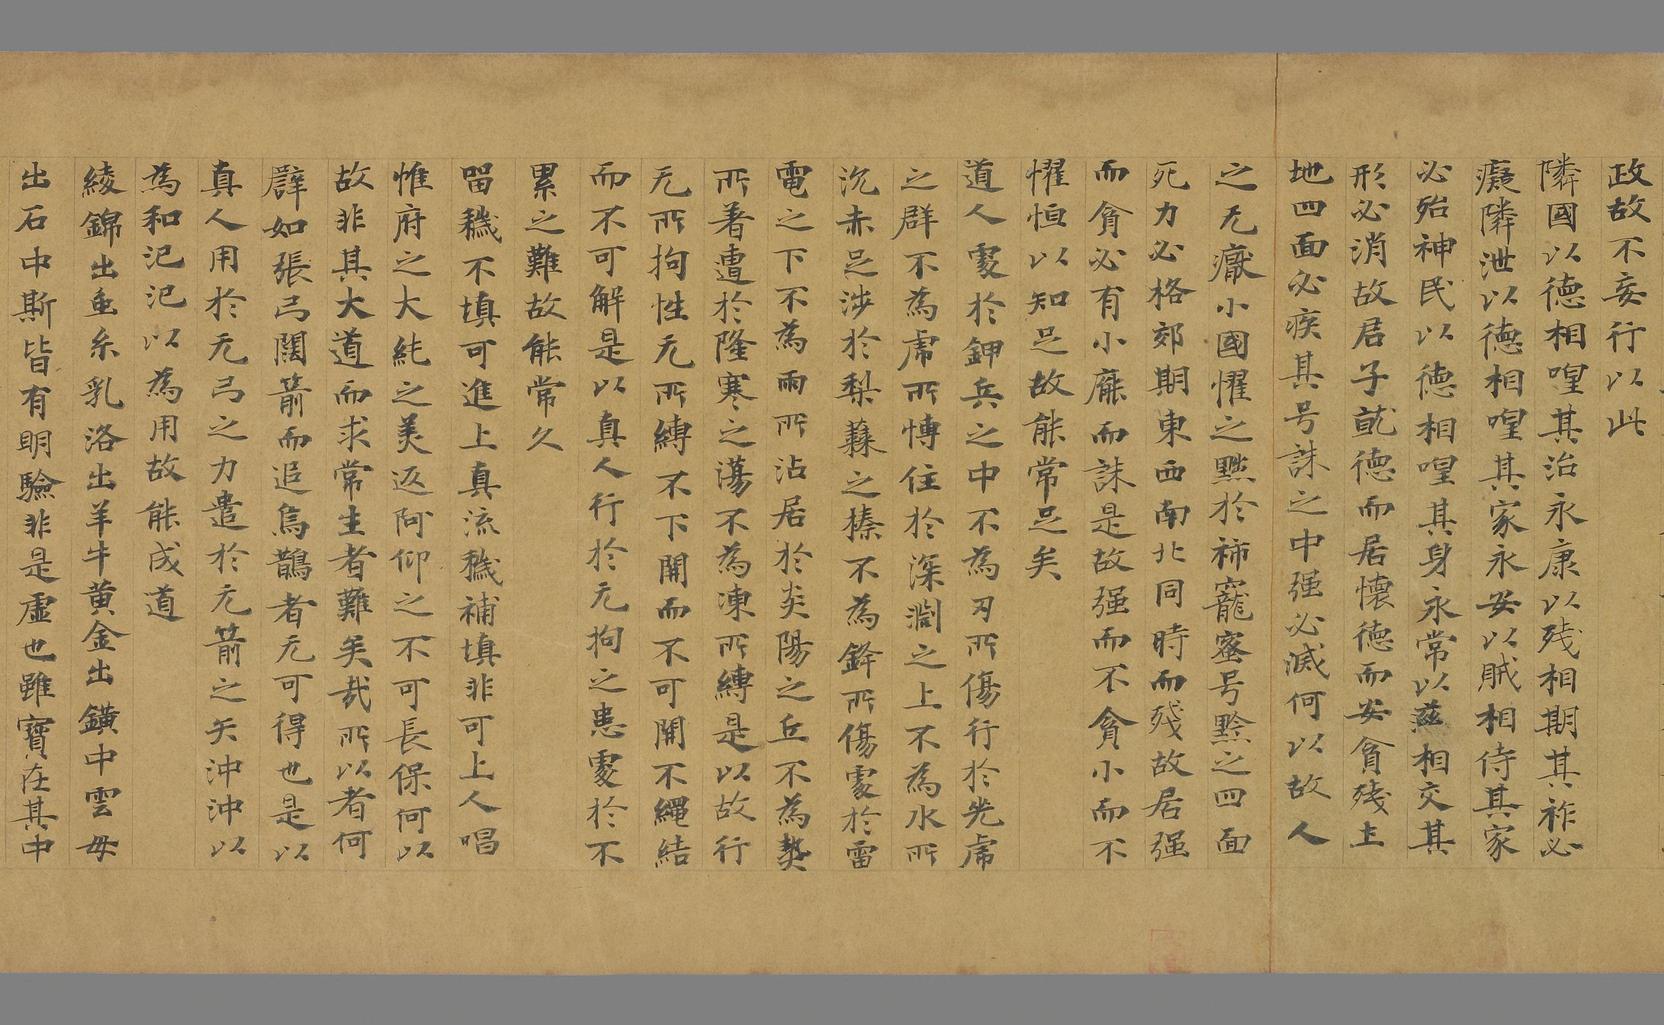 政故不妄行以此
隣國以德相喤其治永康以残相期其祚必
癡隣泄以德相喤其家永安以賊相侍其家
必殆神民以德相喤其身永常以兹相交其
形必消故君子就德而居懷德而安貪残土
地四面必疾其号誅之中强必滅何以故人
之无廠小國懼之黙於祷寵蜜号黙之四面
死力必格郊期東西南北同時而残故居强
而貪必有小廉而誅是故强而不貪小而不
懼恒以知足故能常足矣
道人處於鉀兵之中不為刃所傷行於光虎
之群不為虎所愽住於深澗之上不為水所
沉赤足涉於梨蕀之榛不為鋒所傷處於雷
電之下不為雨所沾居於炎陽之丘不為𤍠
所著遭於隆寒之蕩不為凍所縛是以故行
无所拘性无所縛不下開而不可開不繩結
而不可解是以真人行於无拘之患處於不
累之難故能常久
留穢不填可進上真流穢補填非可上人唱
惟府之大純之美返阿仰之不可長保何以
故非其大道而求常生者難矣哉所以者何
辟如張弓闊箭而追鳥鵲者无可得也是以
真人用於无弓之力遣於无箭之矢沖沖以
為和汜汜以為用故能成道
綾錦出虫糸乳洛出羊牛黄金出鐄中雲母
出石中斯皆有明驗非是虚也雖寶在其中